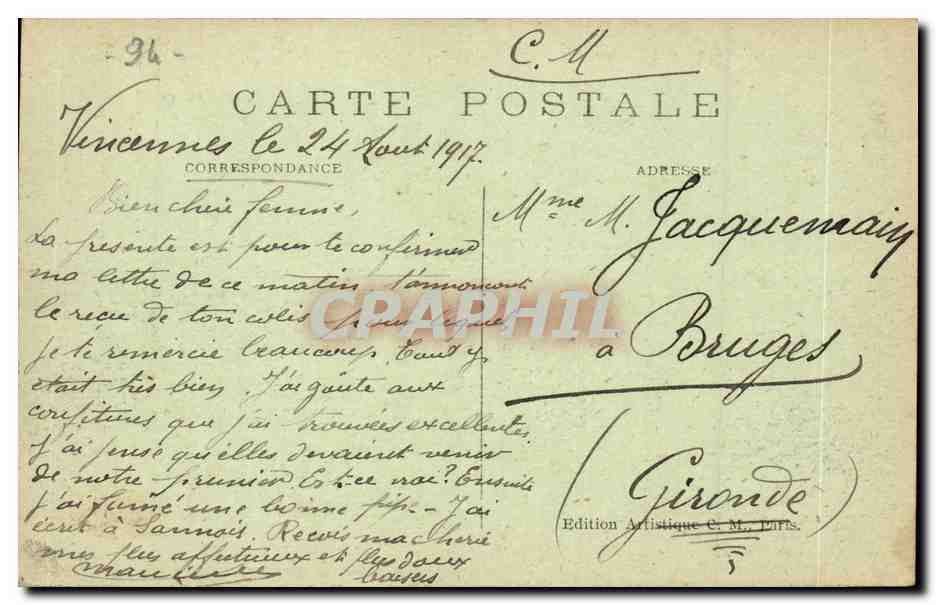 94
C. M
CARTE POSTALE
Vincennes le 24 Aout 1917.
CORRESPONDANCE
ADRESSE
Bien chère femme,
La présente est pour te confirmer
ma lettre de ce matin t'annoncant
le recu de ton colis pour lequel
je te remercie beaucoup. Tout y
était très bien. J'ai goûté aux
confitures que j'ai trouvées excellentes.
J'ai pensé qu'elles devaient venir
de notre prunier Est-ce vrai? Ensuite
j'ai fumé une bonne pipe - J'ai
écrit à Sannois. Reçois ma cherie
mes plus affectueux et plus doux
baisers
Mme M. Jacquemain
à Bruges
(Gironde)
Edition Artistique C. M., Paris.
CPAPHIL